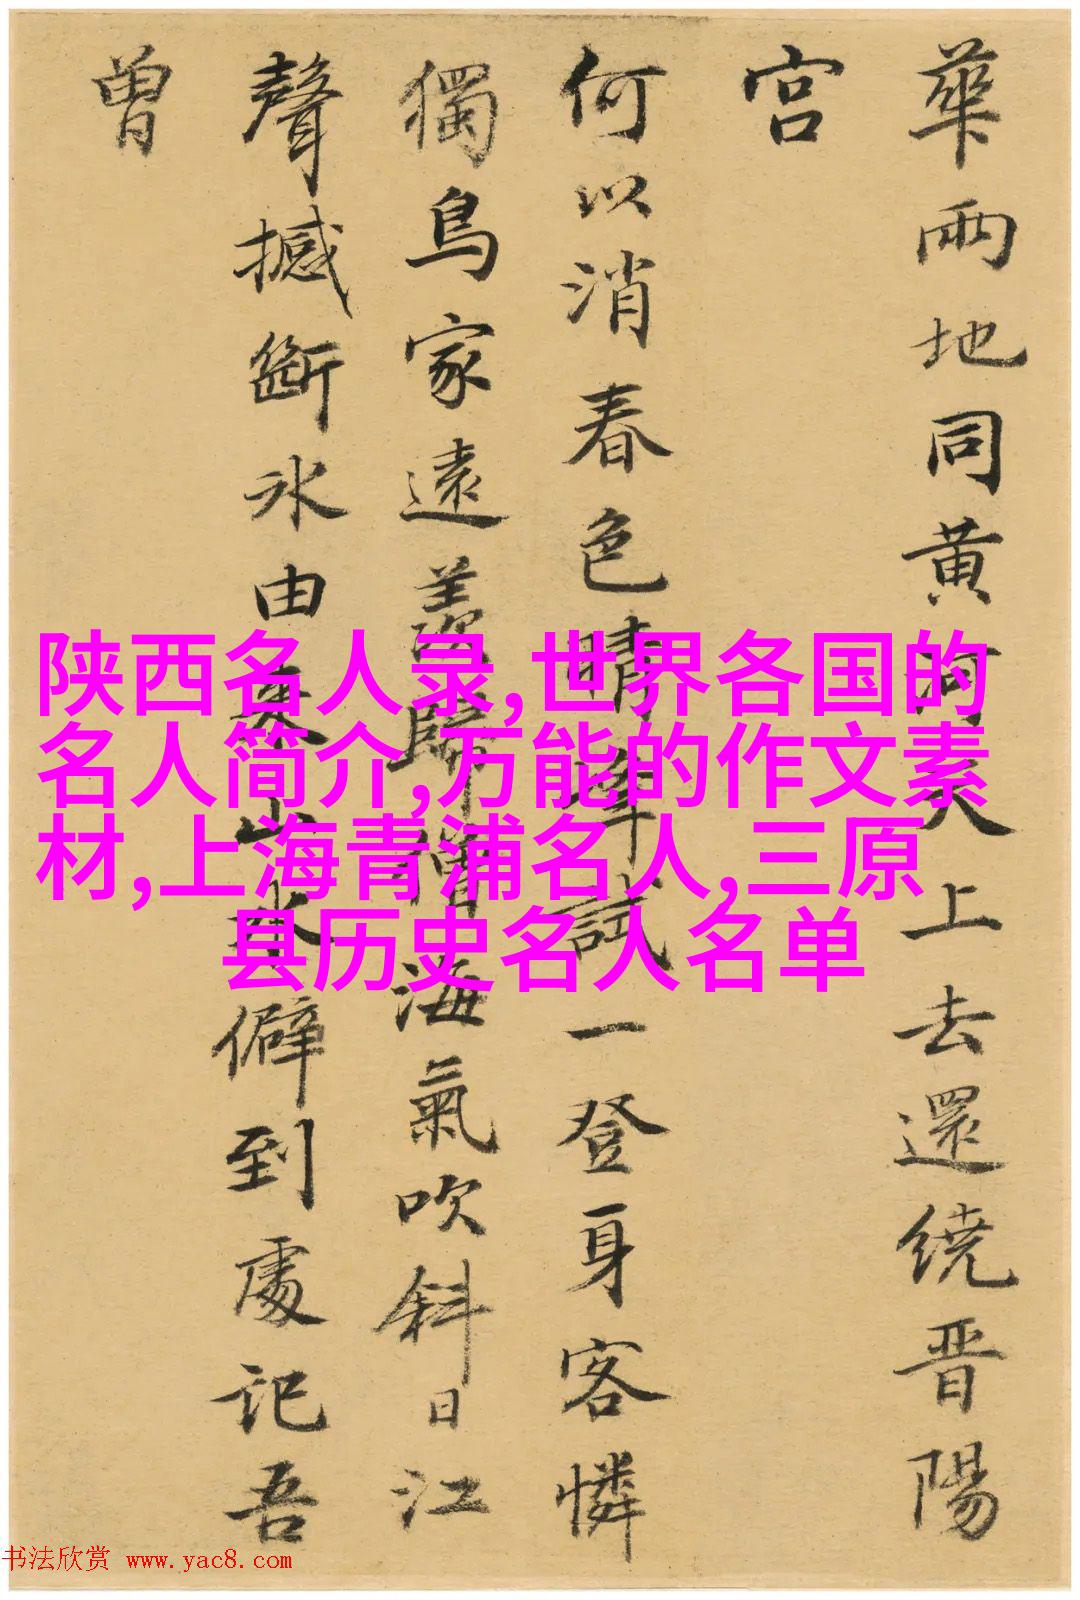 華兩地同黄河天上去還繞晋陽
宫
何以消春色晴峰試一登身客憐
獨鳥家遠羨歸僧海氣吹斜日江
聲撼斷氷由来山水僻到處記吾
曾
陕西名人录,世界各国的
名人简介,万能的作文素
材,上海青浦名人,三原
县历史名人名单
书法欣赏 www.yac8.com